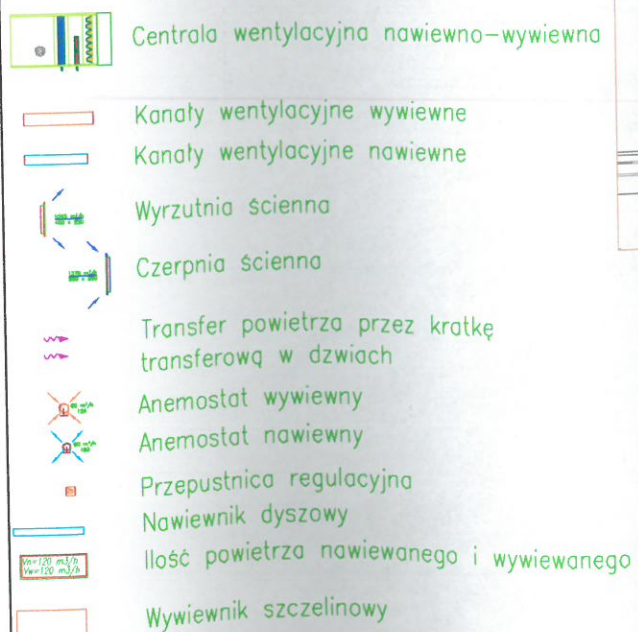 Centrala wentylacyjna nawiewno-wywiewna
Kanały wentylacyjne wywiewne
Kanały wentylacyjne nawiewne
Wyrzutnia ścienna
Czerpnia ścienna
Transfer powietrza przez kratkę
transferową w dzwiach
Anemostat wywiewny
Anemostat nawiewny
Przepustnica regulacyjna
Nawiewnik dyszowy
Vn=120 m3/h
Vw=120 m3/h
Ilość powietrza nawiewanego i wywiewanego
Wywiewnik szczelinowy